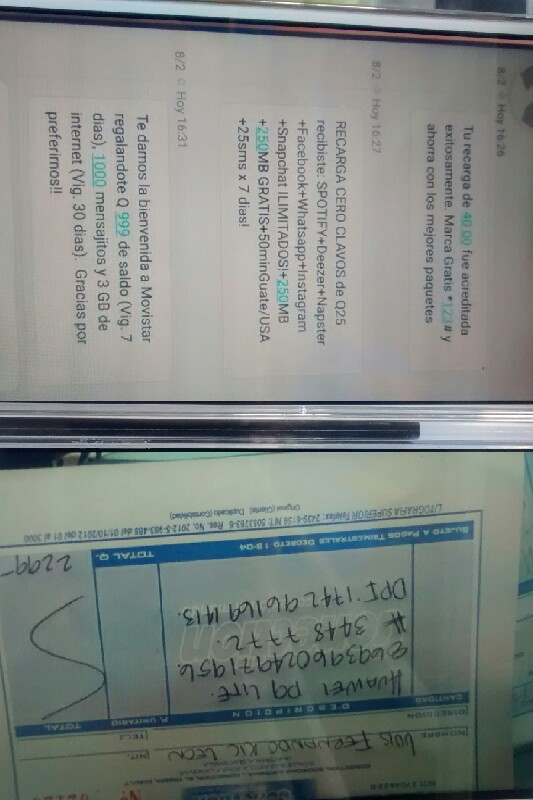 8/2 Hoy 16:26
Tu recarga de 40.00 fue acreditada
exitosamente. Marca Gratis *123# y
ahorra con los mejores paquetes
8/2 Hoy 16:27
RECARGA CERO CLAVOS de Q25
recibiste: SPOTIFY+Deezer+Napster
+Facebook+Whatsapp+Instagram
+Snapchat ILIMITADOS!+250MB
+250MB GRATIS+50minGuate/USA
+25sms x 7 dias!
8/2 Hoy 16:31
Te damos la bienvenida a Movistar
regalandote Q 999 de saldo (Vig. 7
dias), 1000 mensajitos y 3 GB de
internet (Vig. 30 dias). Gracias por
preferirnos!!
NOMBRE LUIS FERNANDO KIC LEON NIT.
DIRECCION TEL.:
CANTIDAD DESCRIPCION P. UNITARIO TOTAL
HUAWEI P9 LITE.
869396024971956
# 3448 7772.
DPI 1742 96169 1413.
SUJETO A PAGOS TRIMESTRALES DECRETO 18-04 TOTAL Q. 2299-
LITOGRAFIA SUPERIOR Telefax: 2435-6-56 NIT: 5053783-6 Res. No. 2012-5-983-488 del 01/10/2012 del 01 al 3000
Original (Cliente) Duplicado (Contabilidad)